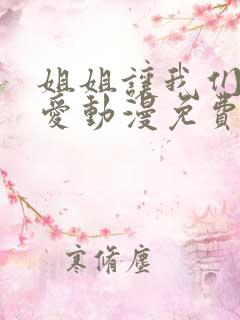 姐姐讓我们
愛動漫免費
寒脩塵